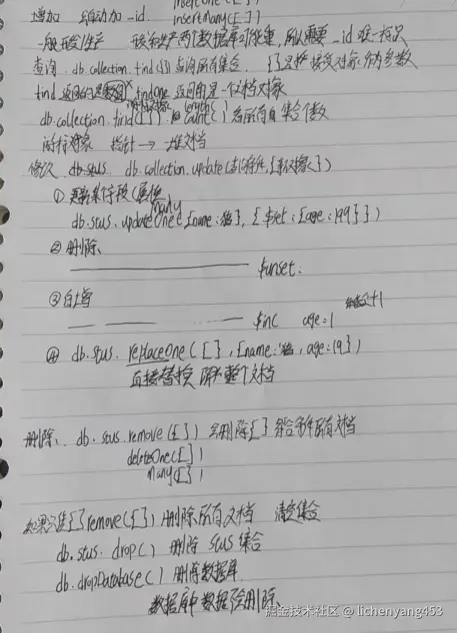 insertOne({})
增加 会自动加 _id. insertMany([])
一般开发/生产 开发和生产两个数据库可能重, 所以需要 _id 唯一标识
查询 db.collection.find({}) 查询所有集合. {}是 接受对象作为参数
find 返回的是数组 findOne 返回的是一个文档对象
db.collection.find({}) count() 看所有集合个数
游标对象 指针 → 文档
修改 db.stus. db.collection.update(查询条件, {新对象})
① 更新某字段(属性
many
db.stus.updateOne({name: }, {$set: {age: 199}})
② 删除、
$unset.
③ 自增
$inc age:1 +1
④ db.stus.replaceOne({}, {name: , age: 19})
直接替换 整个文档
删除、 db.stus.remove({}) 会删除{}符合条件所有文档
deleteOne({})
many({})
如果只是{}remove({}) 删除所有文档 清空集合
db.stus.drop() 删除 stus 集合
db.dropDatabase() 删除数据库.
数据库中数据 会删除.
掘金技术社区 @ lichenyang453